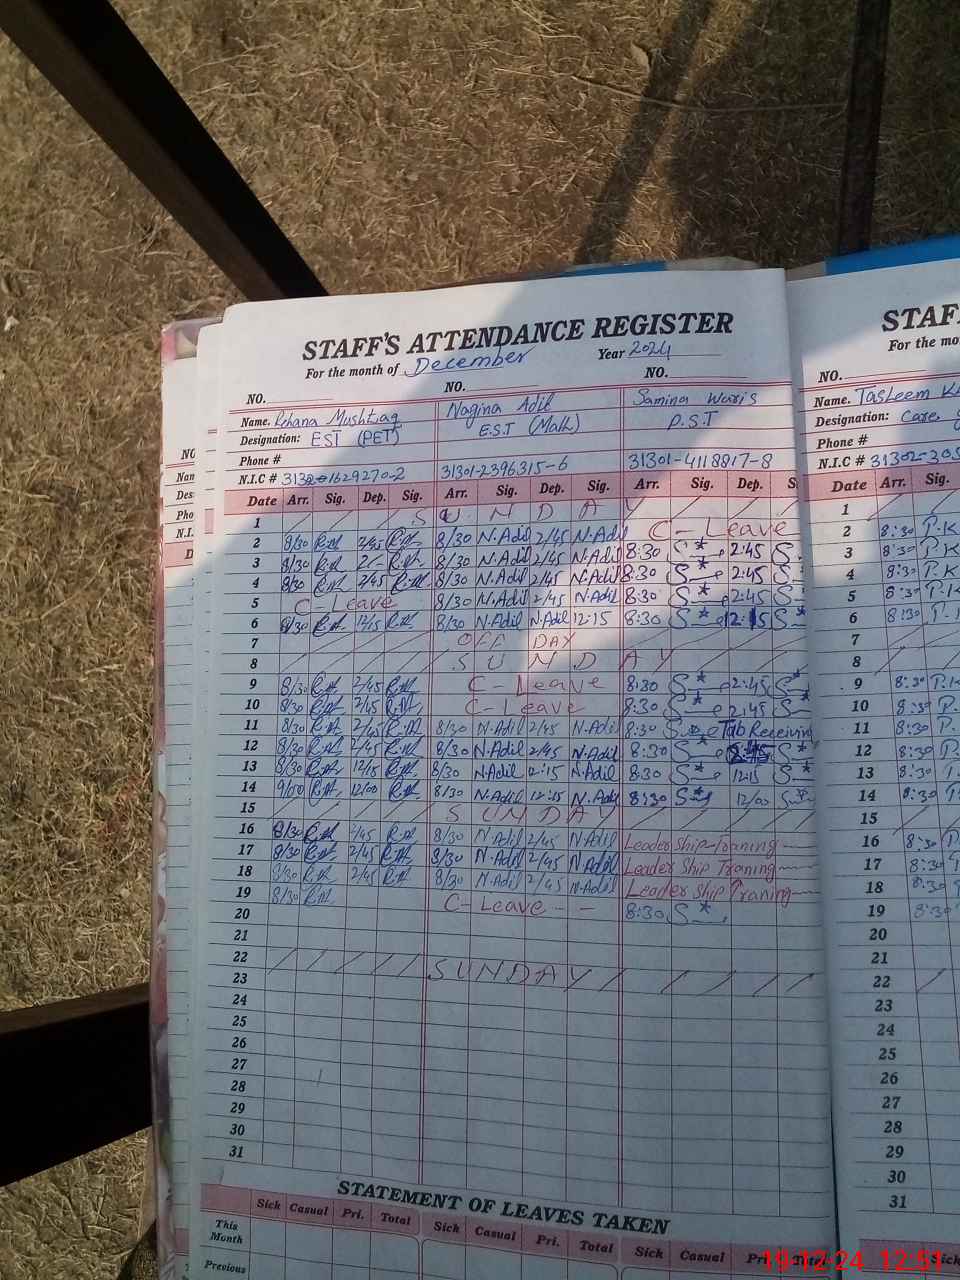 STAFF'S ATTENDANCE REGISTER
For the month of December Year 2024
NO. NO. NO.
Name. Rehana Mushtaq Nagina Adil Samina Waris
Designation: EST (PET) E.S.T (Math) P.S.T
Phone #
N.I.C # 31301-2396315-6 31301-4118817-8
Date Arr. Sig. Dep. Sig. Arr. Sig. Dep. Sig. Arr. Sig. Dep. S
1 SUNDAY
2 8/30 2/45 8/30 N.Adil 2/45 N.Adil C-Leave
3 8/30 8/30 N.Adil 2/45 N.Adil 8:30 2:45
4 8/30 2/45 8/30 N.Adil 2/45 N.Adil 8:30 2:45
5 C-Leave 8/30 N.Adil 2/45 N.Adil 8:30 2:45
6 8/30 12/15 8/30 N.Adil N.Adil 12:15 8:30 12:15
7 OFF DAY
8 SUNDAY
9 8/30 2/45 C-Leave 8:30 2:45
10 8/30 2/45 C-Leave 8:30 2:45
11 8/30 2/45 8/30 N.Adil 2/45 N.Adil 8:30 Tab Receivin
12 8/30 2/45 8/30 N.Adil 2/45 N.Adil 8:30 2:45
13 8/30 12/15 8/30 N.Adil 12:15 N.Adil 8:30 12:15
14 9/00 12/00 8/30 N.Adil 12:15 N.Adil 8:30 12/00
15 SUNDAY
16 8/30 8/30 N.Adil 2/45 N.Adil Leadership Traning
17 8/30 2/45 8/30 N.Adil 2/45 N.Adil Leader Ship Traning
18 8/30 2/45 8/30 N.Adil 2/45 N.Adil Leader Ship Traning
19 8/30 C-Leave-- 8:30
20
21
22 SUNDAY
23
24
25
26
27
28
29
30
31
STATEMENT OF LEAVES TAKEN
Sick Casual Pri. Total Sick Casual Pri. Total Sick Casual Pri. Total
This Month
Previous
STAF
For the mo
NO.
Name. Tasleem K
Designation: Care
Phone #
N.I.C # 31302-305
Date Arr. Sig.
1
2 8:30 P.K
3 8:30 P.K
4 8:30 P.K
5 8:30 P.K
6 8:30 P.
7
8
9 8:30 P.K
10 8:30 P.
11 8:30 P.
12 8:30 P.
13 8:30
14 8:30
15
16 8:30
17 8:30
18 8:30
19 8:30
20
21
22
23
24
25
26
27
28
29
30
31
Sick
19-12-24 12:51